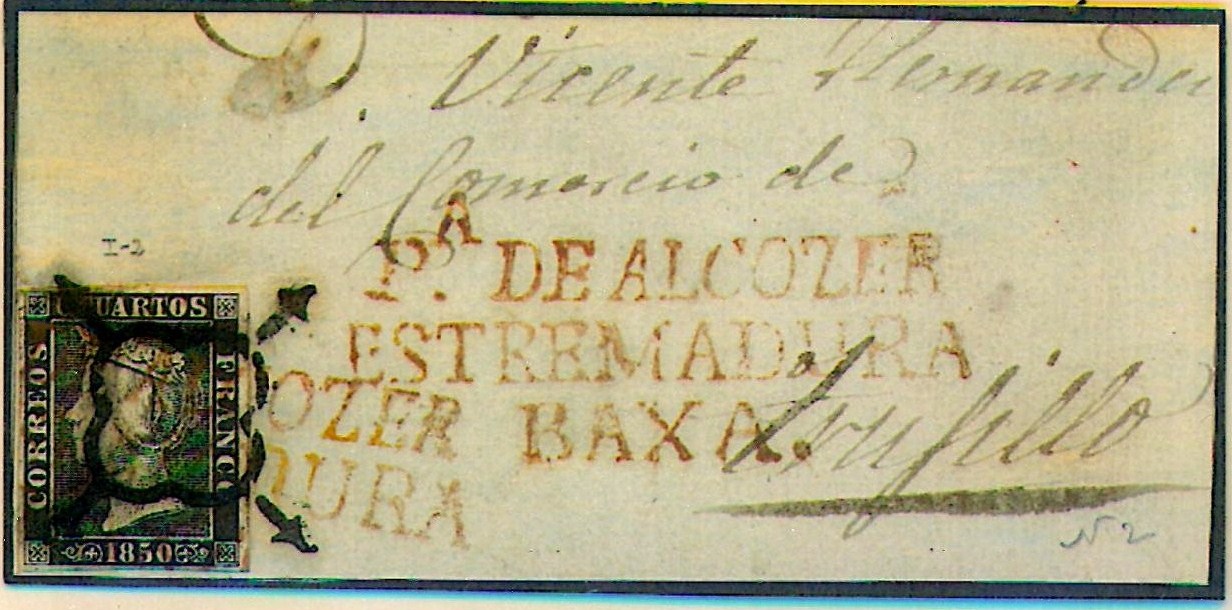 Vicente Hernandez
del Comercio de
I-2
PA. DE ALCOZER
ESTREMADURA
BAXA.
Trujillo
OZER
DURA
CUARTOS
CORREOS
FRANCO
1850
N 2